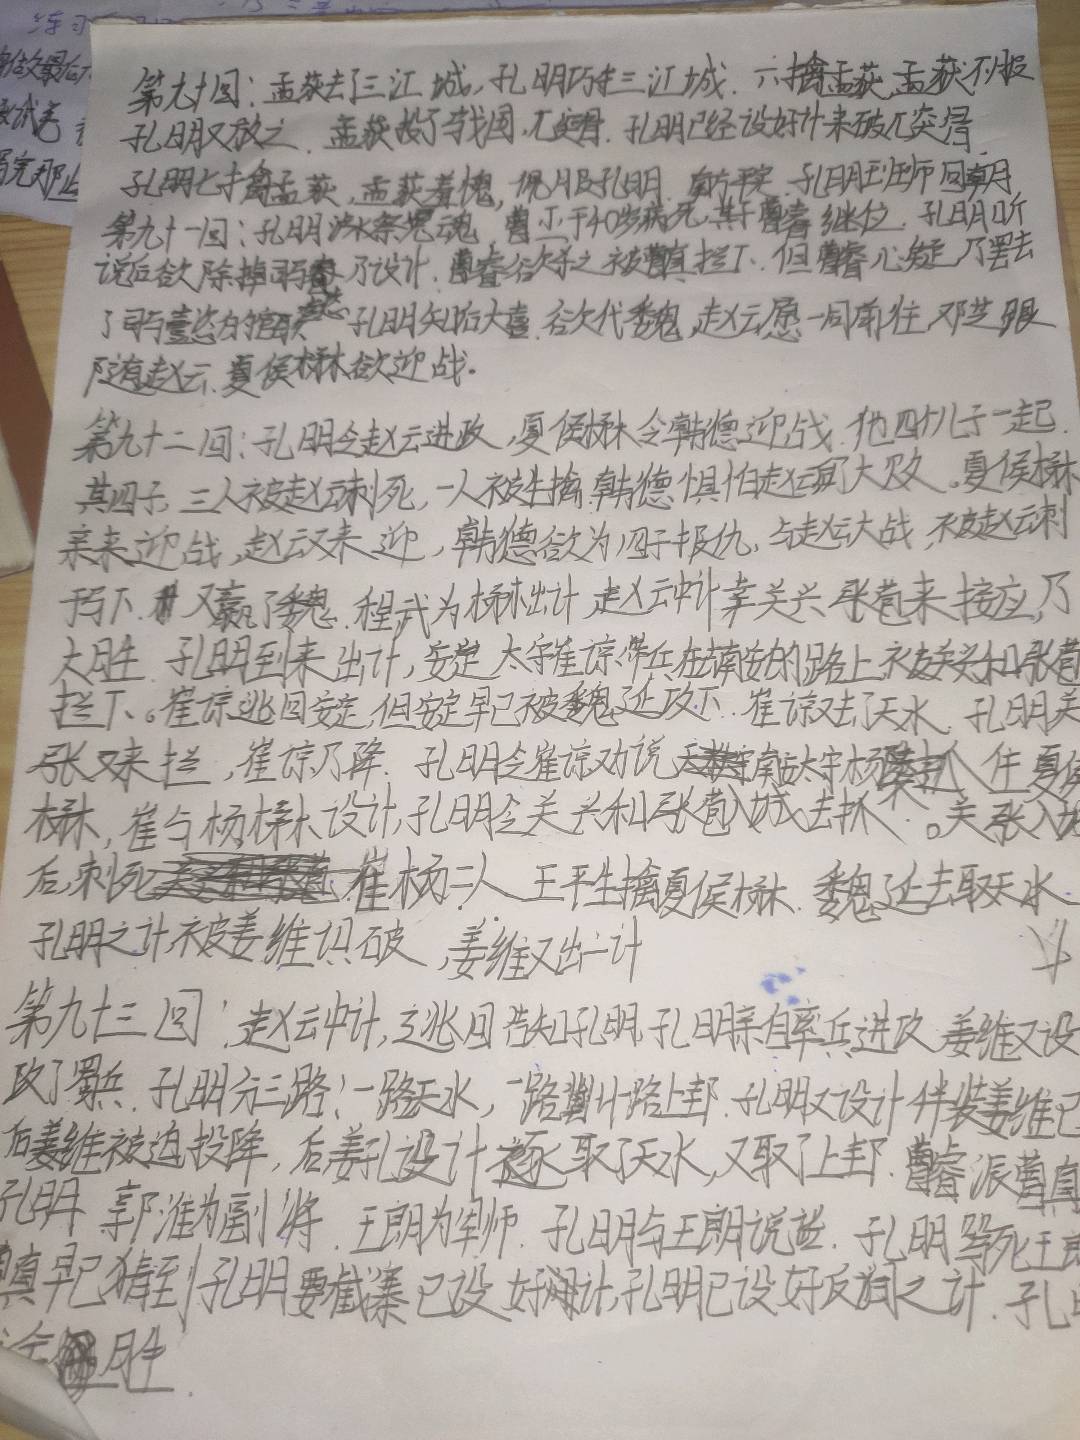 练习
第九十回：孟获去了三江城，孔明巧夺三江城．六擒孟获，孟获不服
孔明又放之．孟获投了乌戈国，兀突骨．孔明已经设好计来破兀突骨．
孔明七擒孟获，孟获羞愧，佩服孔明．南方平定．孔明班师回朝
第九十一回：孔明泸水祭鬼魂，曹丕于40岁病死，其子曹睿继位．孔明听
说后欲除掉司马懿乃设计．曹睿欲杀之被曹真拦下．但曹睿心疑乃罢去
了司马懿的官职 孔明知后大喜．欲伐魏，赵云愿一同前往，邓芝跟
随赵云．夏侯楙欲迎战。
第九十二回：孔明令赵云进攻，夏侯楙令韩德迎战．他四个儿子一起．
其四子，三人被赵云刺死，一人被生擒．韩德惧怕赵云乃大败。夏侯楙
亲来迎战，赵云又来迎，韩德欲为四子报仇，与赵云大战，被赵云刺
于马下．又赢了魏．程武为楙出计，赵云中计幸关兴张苞来接应，乃
大胜．孔明到来出计，安定太守崔谅作兵在去南安的路上被关兴和张苞
拦下。崔谅逃回安定，但安定早已被魏延攻下．崔谅又去了天水．孔明关
张又来拦，崔谅乃降．孔明令崔谅劝说南安太守杨陵抓住夏侯
楙，崔与杨楙设计，孔明令关兴和张苞入城去抓。关张入城
后，刺死崔杨二人．王平生擒夏侯楙．魏延去取天水
孔明之计被姜维识破，姜维又出一计
第九十三回：赵云中计，逃回告知孔明，孔明亲自率兵进攻 姜维又设
攻了蜀兵．孔明分三路：一路天水，一路冀 路上邽．孔明又设计佯装姜维已
后姜维被迫投降，后姜孔设计逐取了天水，又取了上邽．曹睿派曹真
孔明 郭淮为副将．王朗为军师．孔明与王朗说 ．孔明骂死王
真早已猜到孔明要截寨已设好计，孔明已设好反间之计．孔
胜．